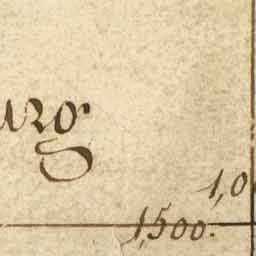 urg
1,0
1,500.